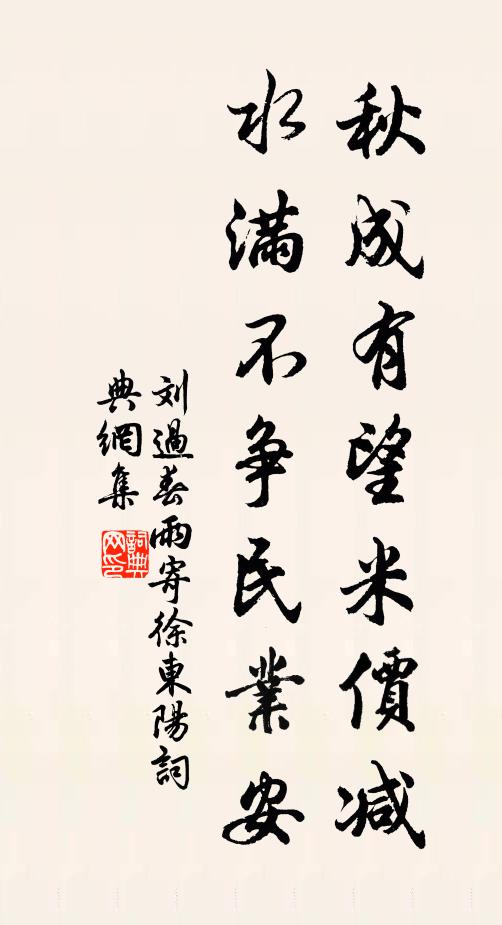 秋成有望米價減
水滿不爭民業安
刘過春雨寄徐東陽詞
典網集
詞典
网印